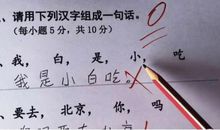 、请用下列汉字组成一句话。
(每小题5分，共10分)
、我，白，是，小，吃
我是小白吃。
、要去，北京，你，吗